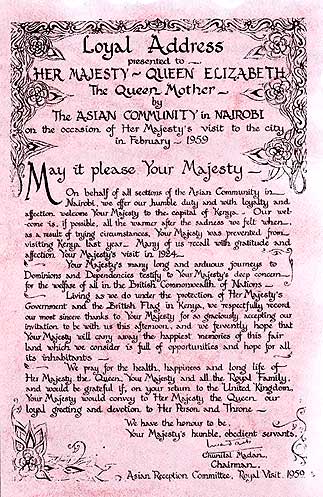 Loyal Address
presented to
HER MAJESTY ~ QUEEN ELIZABETH
The Queen Mother
by
The ASIAN COMMUNITY in NAIROBI
on the occasion of Her Majesty's visit to the city
in February ~ 1959
May it please Your Majesty
On behalf of all sections of the Asian Community in
Nairobi, we offer our humble duty and with loyalty and
affection welcome Your Majesty to the capital of Kenya. Our wel-
come is, if possible, all the warmer after the sadness we felt when
as a result of trying circumstances, Your Majesty was prevented from
visiting Kenya last year. Many of us recall with gratitude and
affection Your Majesty's visit in 1924
Your Majesty's many long and arduous journeys to
Dominions and Dependencies testify to Your Majesty's deep concern
for the welfare of all in the British Commonwealth of Nations
Living as we do under the protection of Her Majesty's
Government and the British Flag in Kenya, we respectfully record
our most sincere thanks to Your Majesty for so graciously accepting our
invitation to be with us this afternoon, and we fervently hope that
Your Majesty will carry away the happiest memories of this fair
land which we consider is full of opportunities and hope for all
its inhabitants
We pray for the health, happiness and long life of
Her Majesty the Queen, Your Majesty and all the Royal Family,
and would be grateful if, on your return to the United Kingdom,
Your Majesty would convey to Her Majesty the Queen our
loyal greeting and devotion to Her Person and Throne
We have the honour to be,
Your Majesty's humble, obedient servants,
Chunilal Madan,
Chairman,
Asian Reception Committee, Royal Visit, 1959